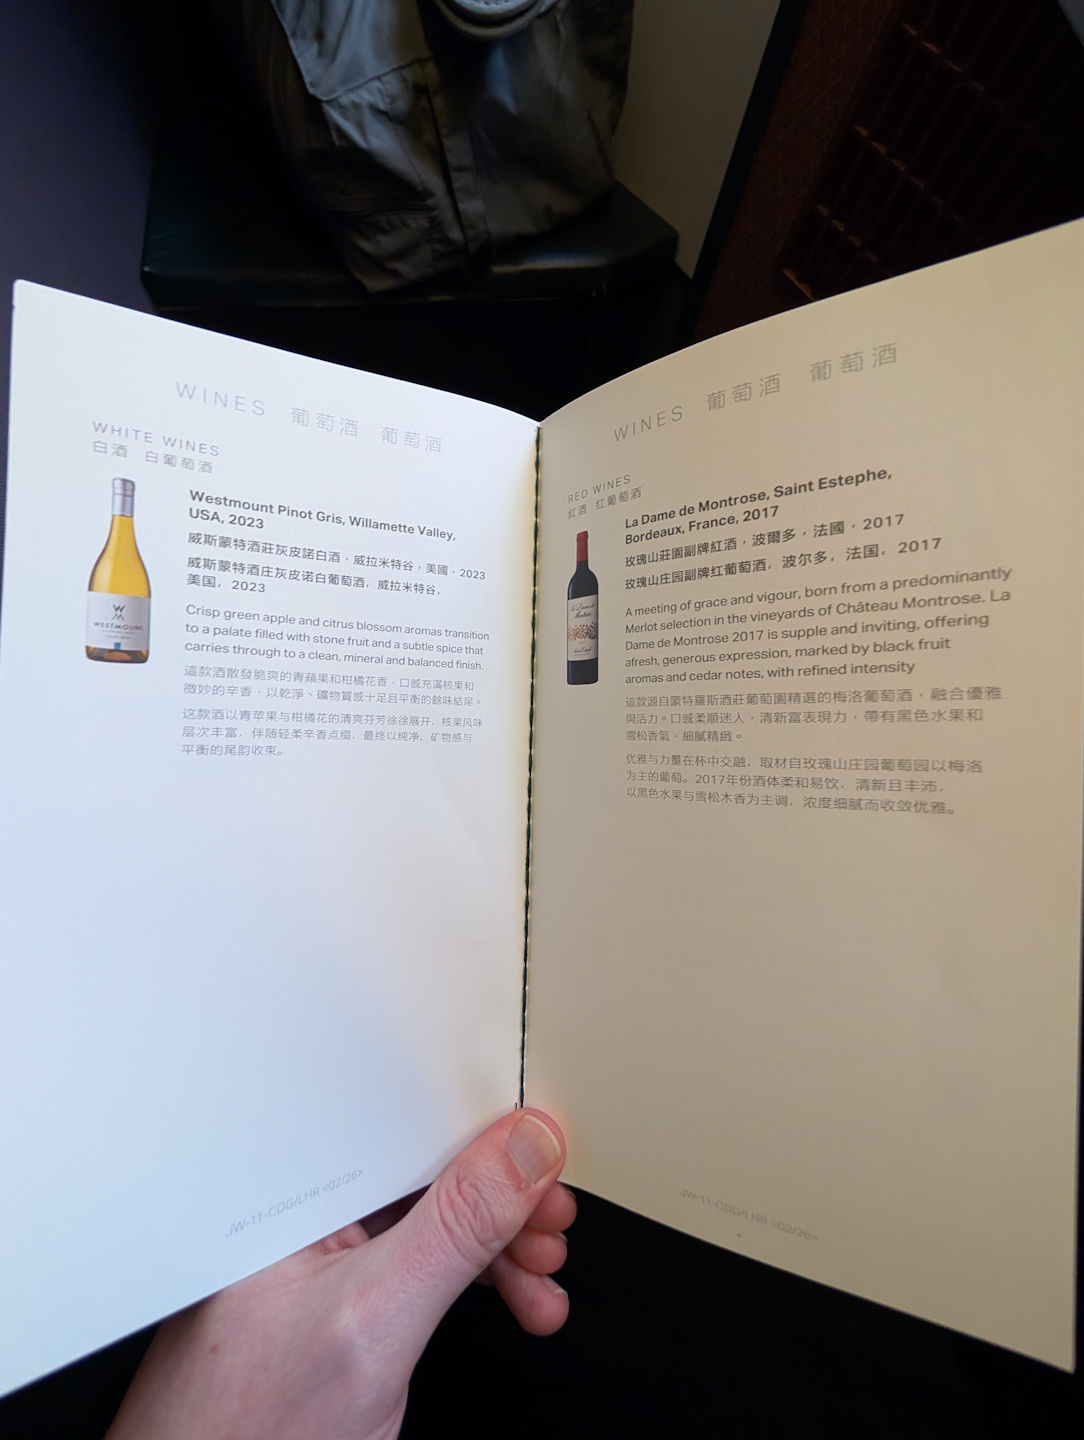 WINES 葡萄酒 葡萄酒
WHITE WINES
白酒 白葡萄酒
Westmount Pinot Gris, Willamette Valley,
USA, 2023
威斯蒙特酒莊灰皮諾白酒，威拉米特谷，美國，2023
威斯蒙特酒庄灰皮诺白葡萄酒，威拉米特谷，
美国，2023
Crisp green apple and citrus blossom aromas transition
to a palate filled with stone fruit and a subtle spice that
carries through to a clean, mineral and balanced finish.
這款酒散發脆爽的青蘋果和柑橘花香，口感充滿核果和
微妙的辛香，以乾淨、礦物質感十足且平衡的餘味結尾。
这款酒以青苹果与柑橘花的清爽芬芳徐徐展开，核果风味
层次丰富，伴随轻柔辛香点缀，最终以纯净、矿物感与
平衡的尾韵收束。
WESTMOUNT
JW-11-CDG/LHR <02/26>
WINES 葡萄酒 葡萄酒
RED WINES
紅酒 红葡萄酒
La Dame de Montrose, Saint Estephe,
Bordeaux, France, 2017
玫瑰山莊園副牌紅酒，波爾多，法國，2017
玫瑰山庄园副牌红葡萄酒，波尔多，法国，2017
A meeting of grace and vigour, born from a predominantly
Merlot selection in the vineyards of Château Montrose. La
Dame de Montrose 2017 is supple and inviting, offering
afresh, generous expression, marked by black fruit
aromas and cedar notes, with refined intensity
這款源自蒙特羅斯酒莊葡萄園精選的梅洛葡萄酒，融合優雅
與活力。口感柔順迷人，清新富表現力，帶有黑色水果和
雪松香氣，細膩精緻。
优雅与力量在杯中交融，取材自玫瑰山庄园葡萄园以梅洛
为主的葡萄。2017年份酒体柔和易饮，清新且丰沛，
以黑色水果与雪松木香为主调，浓度细腻而收敛优雅。
La Dame de
Montrose
JW-11-CDG/LHR <02/26>